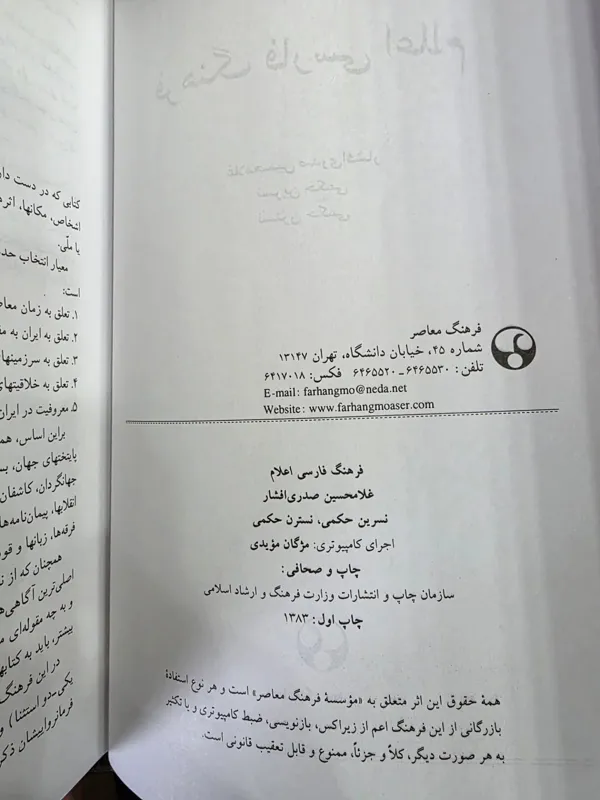 فرهنگ معاصر
شماره ۴۵، خیابان دانشگاه، تهران ۱۳۱۴۷
تلفن: ۶۴۶۵۵۳۰ ـ ۶۴۶۵۵۲۰ فکس: ۶۴۱۷۰۱۸
E-mail: farhangmo@neda.net
Website: www.farhangmoaser.com
فرهنگ فارسی اعلام
غلامحسین صدری‌افشار
نسرین حکمی، نسترن حکمی
اجرای کامپیوتری: مژگان مؤیدی
چاپ و صحافی:
سازمان چاپ و انتشارات وزارت فرهنگ و ارشاد اسلامی
چاپ اول: ۱۳۸۳
همهٔ حقوق این اثر متعلق به «مؤسسهٔ فرهنگ معاصر» است و هر نوع استفادهٔ
بازرگانی از این فرهنگ اعم از زیراکس، بازنویسی، ضبط کامپیوتری و یا تکثیر
به هر صورت دیگر، کلاً و جزئاً، ممنوع و قابل تعقیب قانونی است.
کتابی که در دست
اشخاص، مکانها،
یا ملّی.
معیار انتخاب
است:
۱. تعلق به زمان
۲. تعلق به ایران به
۳. تعلق به سرزمینهای
۴. تعلق به خلاقیتهای
۵. معروفیت در ایران
براین اساس،
پایتختهای جهان،
جهانگردان، کاشفان
انقلابها، پیمان‌نامه‌ها
فرقه‌ها، زبانها و
همچنان که از
اصلی‌ترین آگاهی‌ها
و به چه مقوله‌ای
بیشتر، باید به
در این فرهنگ
یکی-دو استثنا) و
فرمانرواییشان